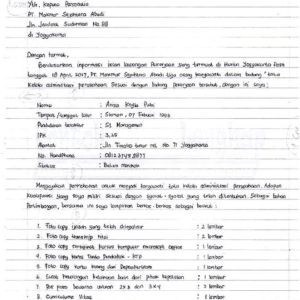 Yth. Kepala Personalia
PT Makmur Sejahtera Abadi
Jln. Jendral Sudirman No 88
di Yogyakarta
Dengan hormat,
Berdasarkan informasi iklan lowongan Pekerjaan yang termuat di Harian Yogyakarta Post
tanggal 18 April 2017, PT. Makmur Sejahtera Abadi
Kelola administrasi perusahaan. Sesuai dengan bidang pekerjaan tersebut, dengan ini saya;
Nama : Anisa Puti
Tempat/tanggal lahir : Sleman, 07 Februari
Pendidikan terakhir : S1 Manajemen
IPK : 3,25
Alamat : Jln Timoho timur no. 71 Yogyakarta
No. Handphone :
Status : Belum Menikah
Mengajukan permohonan untuk menjadi karyawati tata kelola administrasi perusahaan. Adapun
kualifikasi yang saya miliki sesuai dengan syarat-syarat yang telah ditentukan. Sebagai bahan
Pertimbangan, bersama ini saya lampirkan berkas-berkas sebagai berikut :
1. Foto copy ijazah yang telah dilegalisir : 2 lembar
2. Foto copy transkrip nilai : 2 lembar
3. Foto copy sertifikat kursus komputer microsoft office : 1 lembar
4. Foto copy Kartu Tanda Penduduk - KTP : 1 lembar
5. Foto copy Kartu Kuning dari Depnakertrans : 1 lembar
6. Surat keterangan kelakuan baik dari pihak kepolisian : 1 lembar
7. Pas foto berwarna ukuran 2x3 dan 3x4 : 2 lembar
8. Curriculum Vitae : 1 lembar